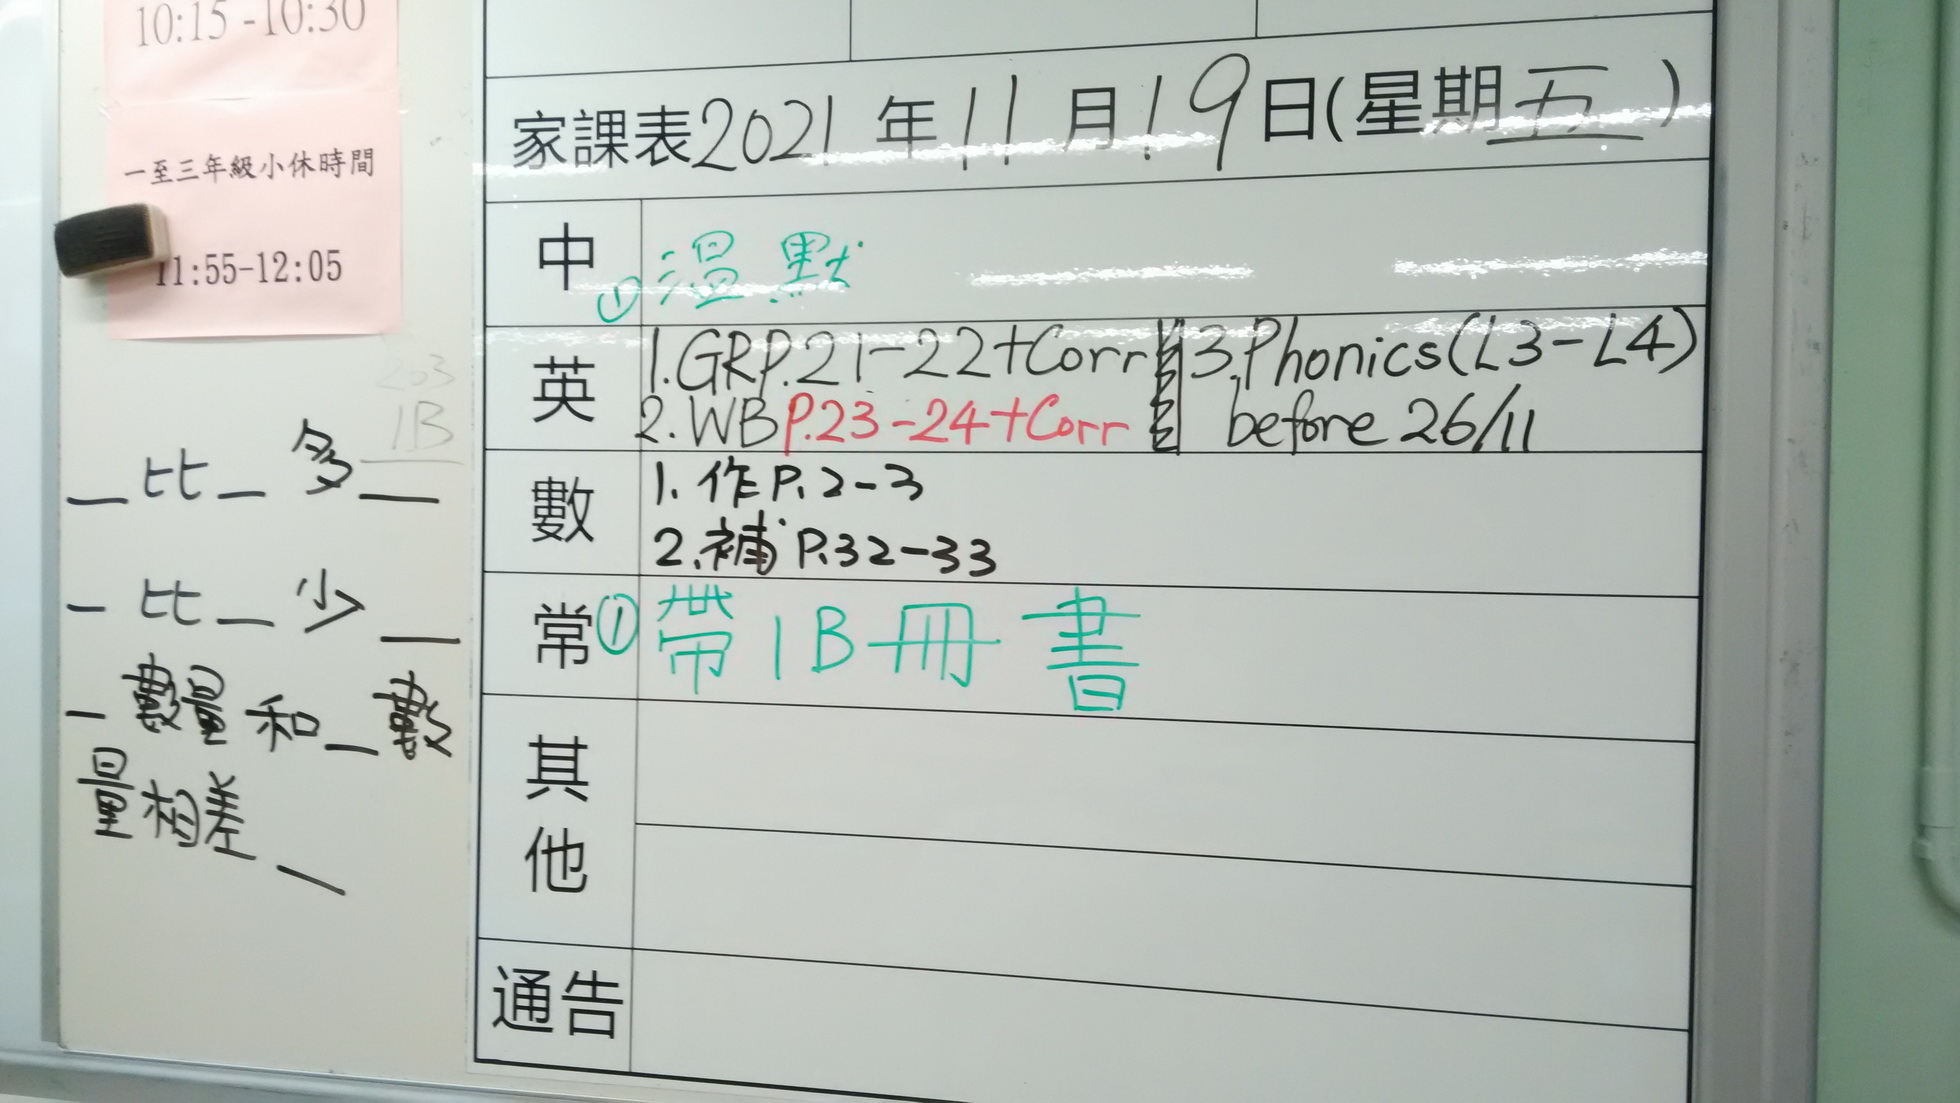 10:15-10:30
一至三年級小休時間
11:55-12:05
203
1B
_比_多_
_比_少_
_數量和_數
量相差_
家課表2021年11月19日(星期五)
中 ①溫默
英 1.GRP.21-22+Corr 3.Phonics(L3-L4)
2.WBP.23-24+Corr before 26/11
數 1.作P.2-3
2.補P.32-33
常 ①帶1B冊書
其
他
通告